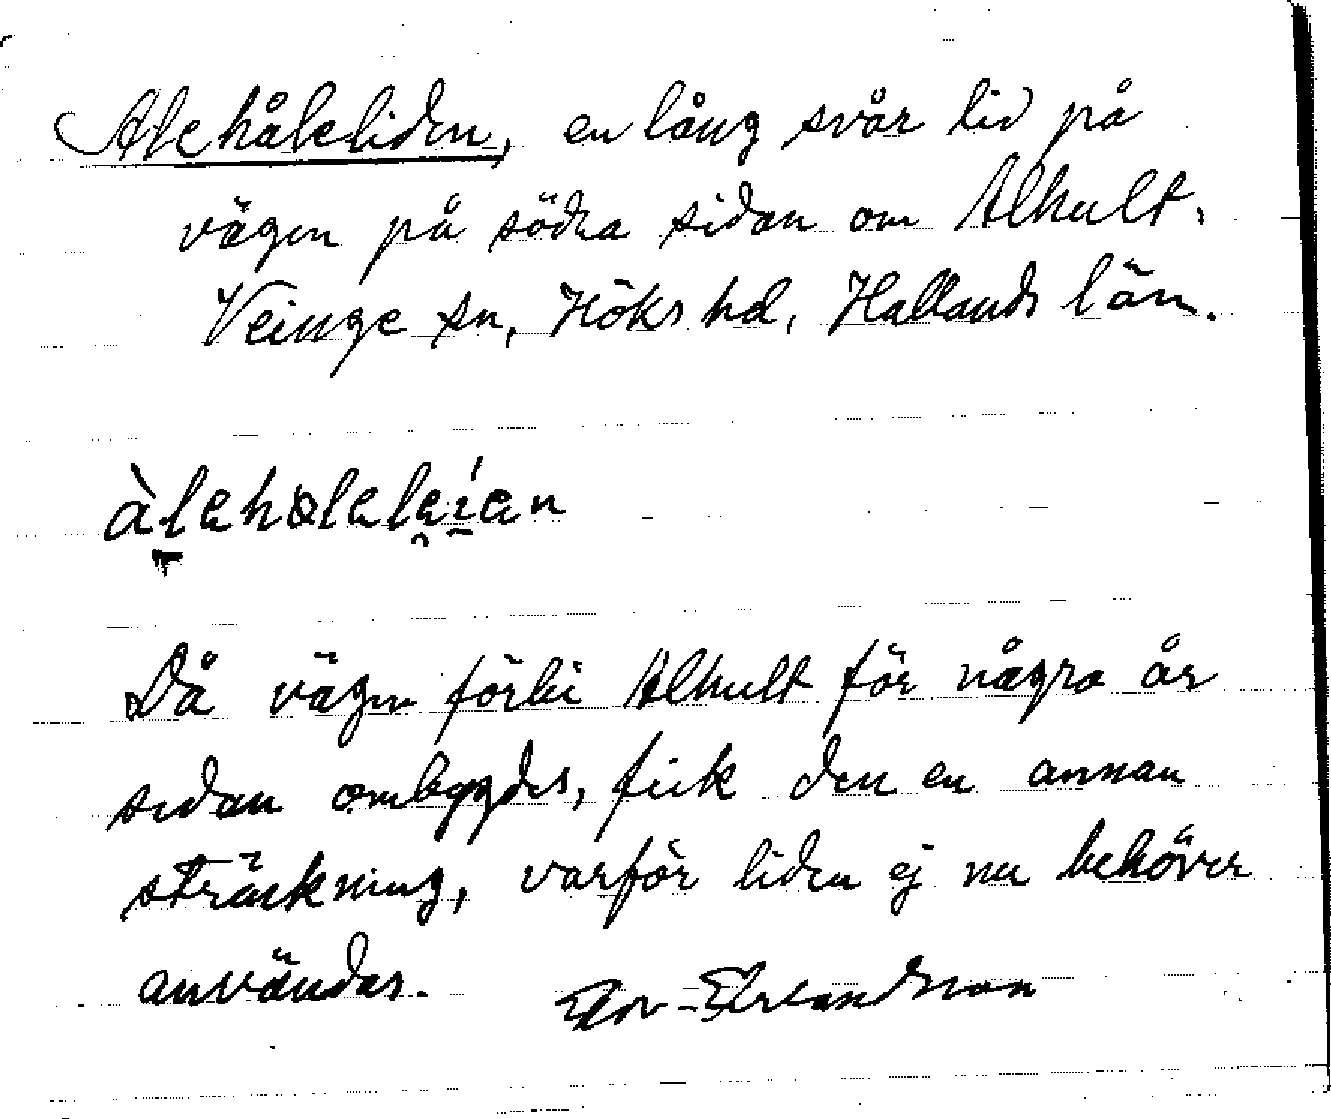 Alehåleliden, en lång svår lid på
vägen på södra sidan om Alhult.
Veinge sn, Höks hd, Hallands län.
Då vägen förbi Alhult för några år
sidan ombygdes, fick den en annan
sträckning, varför liden ej nu behöver
användas.